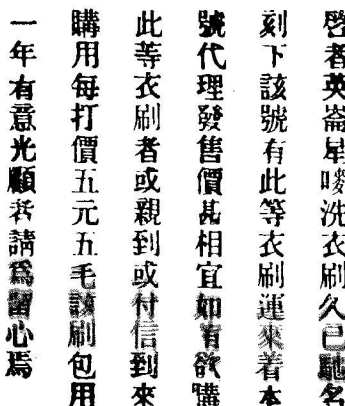 啓者英崙星嘜洗衣刷久已馳名
刻下該號有此等衣刷運來着本
號代理發售價甚相宜如有欲購
此等衣刷者或親到或付信到來
購用每打價五元五毛該刷包用
一年有意光顧者請爲留心焉